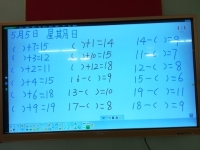 5月5日 星期日
( )+7=15 ( )+1=14 14-( )=
( )+3=12 ( )+10=15 11-( )=7
( )+2=11 ( )+12=18 12-( )=8
( )+4=15 16-( )=9 15-( )=6
( )+6=18 13-( )=10 19-( )=11
( )+9=19 17-( )=8 18-( )=9